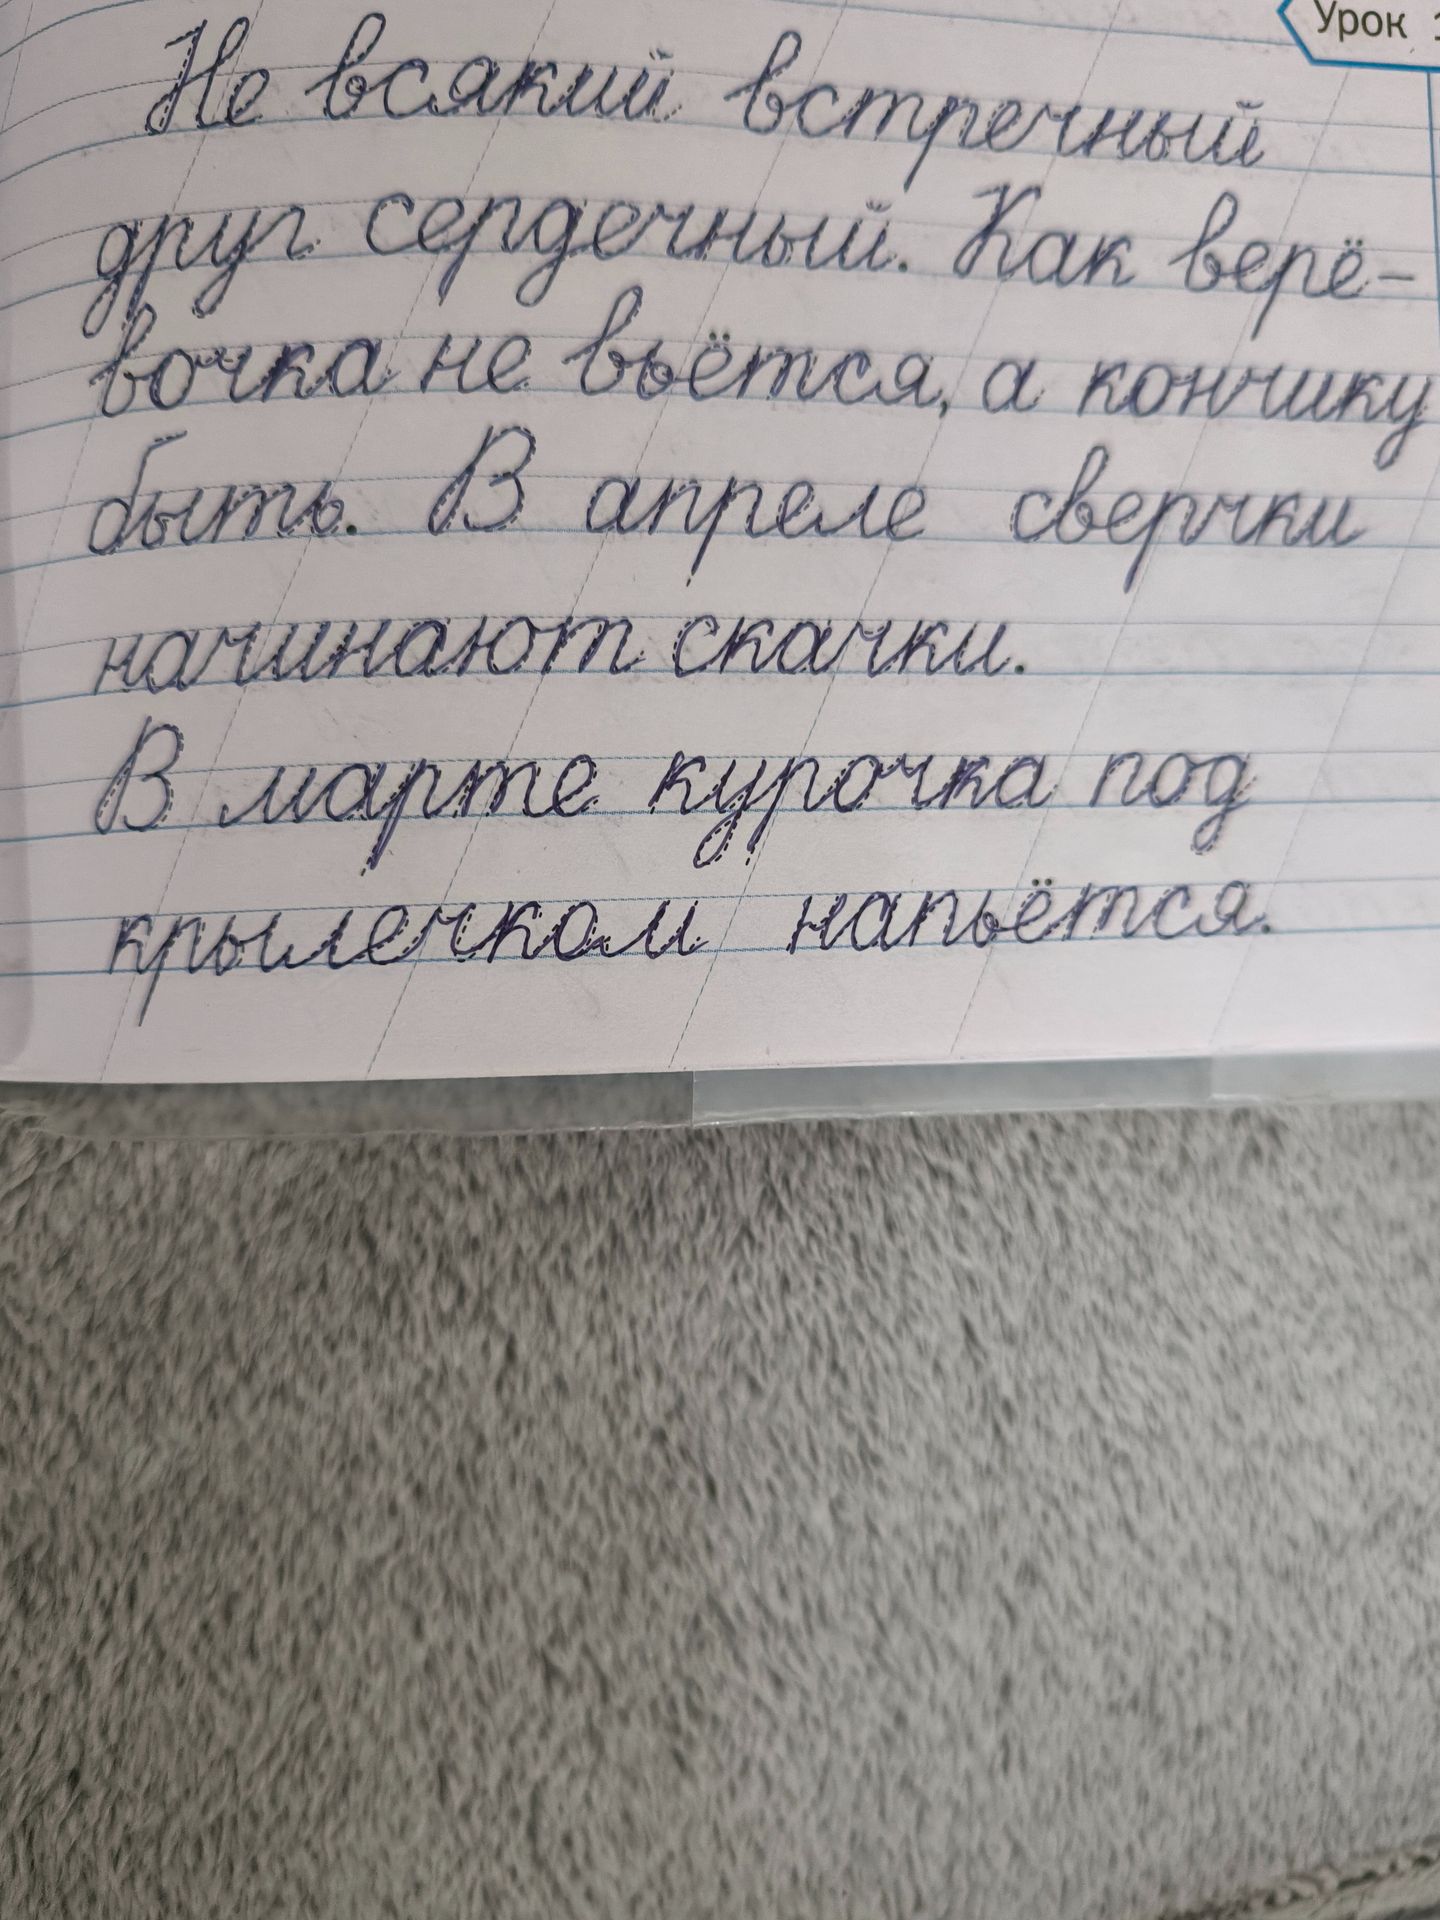 Урок
Не всякий встречный
друг сердечный. Как верё-
вочка не вьётся, а кончику
быть. В апреле сверчки
начинают скачки.
В марте курочка под
крылечком напьётся.